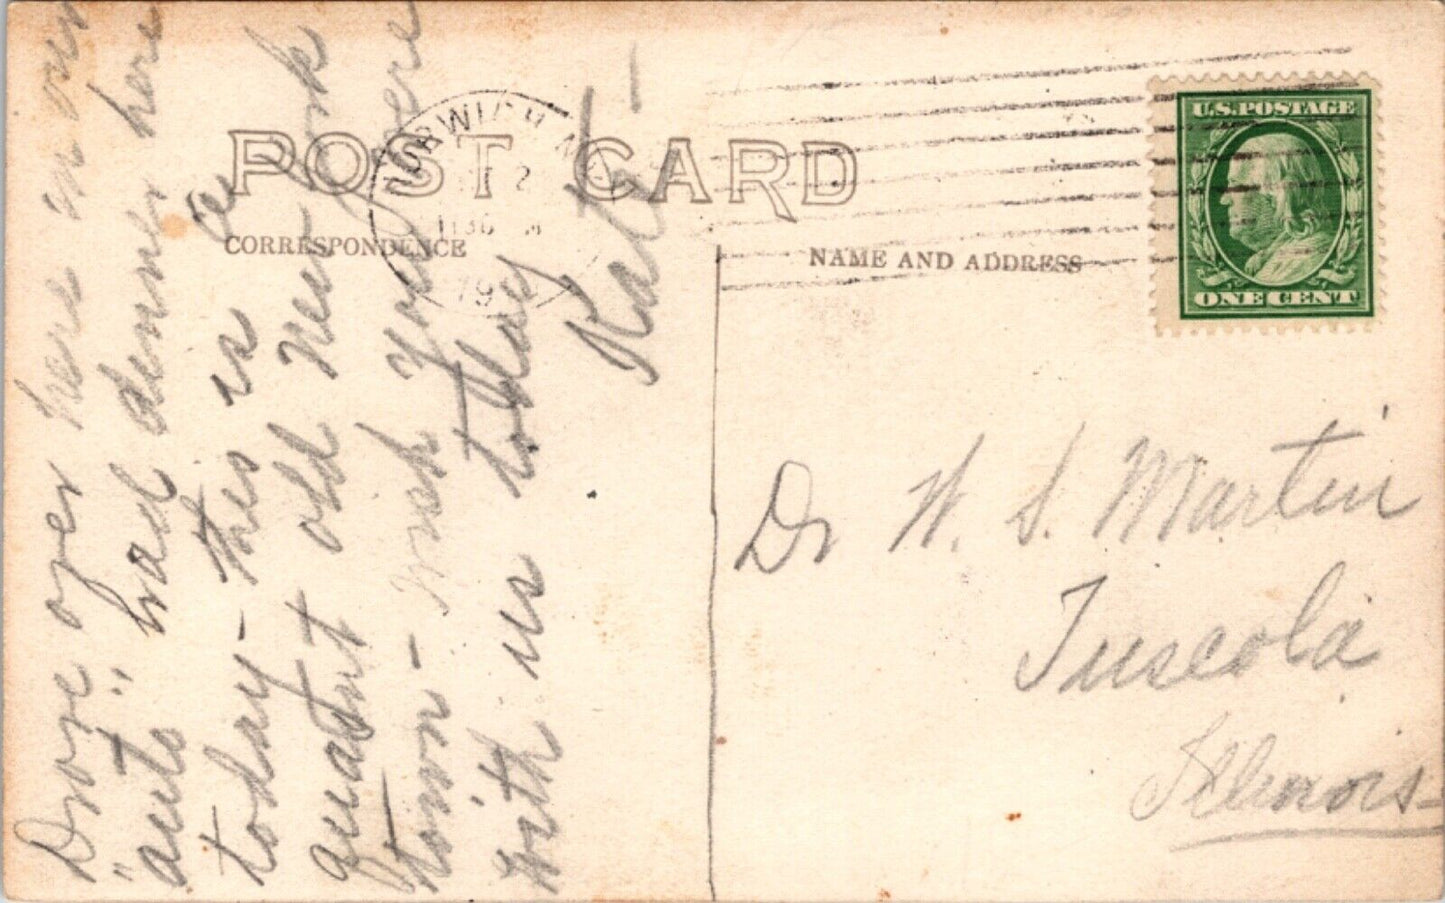 POST CARD
CORRESPONDENCE
NAME AND ADDRESS
U.S. POSTAGE
ONE CENT
NORWICH N.Y.
2
1130
19
Drove over here in our
"auto" had dinner here
today - this is a
quaint old New York
town - wish you were
with us today
Kate -
Dr W. S. Martin
Tuscola
Illinois -